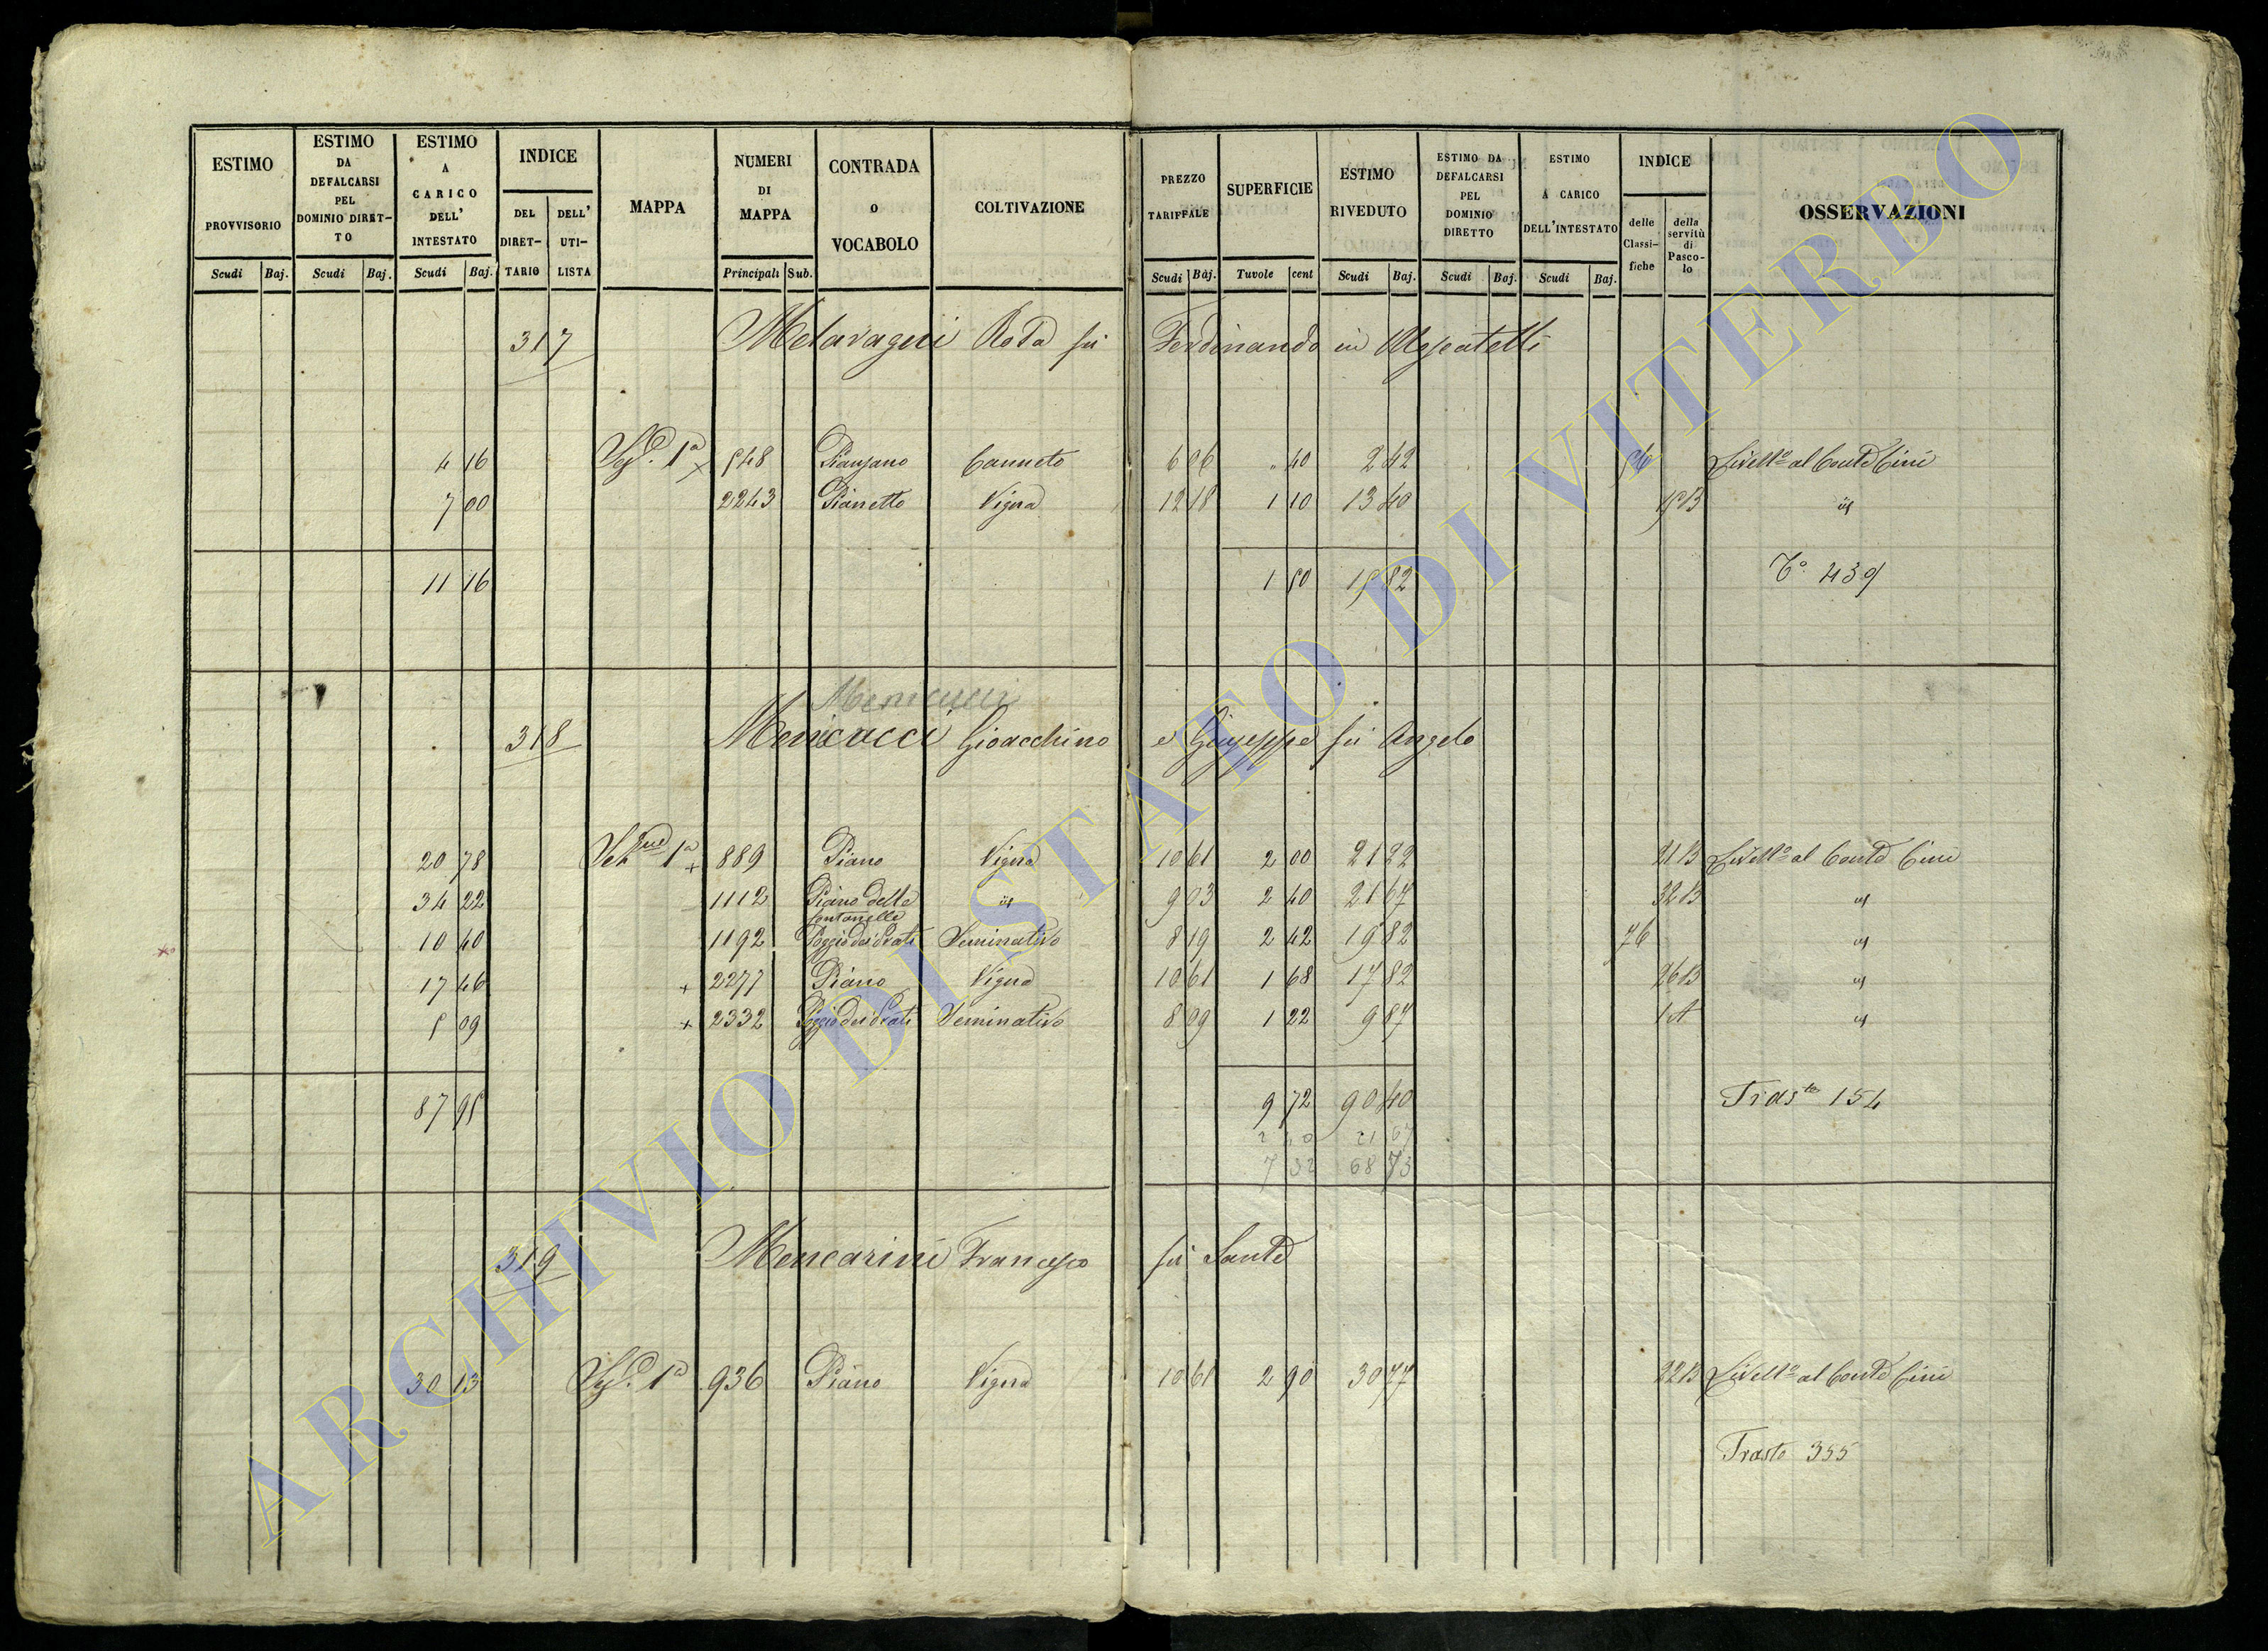 ESTIMO PROVVISORIO
ESTIMO DA DEFALCARSI PEL DOMINIO DIRETTO
ESTIMO A CARICO DELL' INTESTATO
INDICE
DEL DIRETTARIO
DELL' UTILISTA
MAPPA
NUMERI DI MAPPA
CONTRADA o VOCABOLO
COLTIVAZIONE
PREZZO TARIFFALE
SUPERFICIE
ESTIMO RIVEDUTO
ESTIMO DA DEFALCARSI PEL DOMINIO DIRETTO
ESTIMO A CARICO DELL'INTESTATO
INDICE
delle Classifiche
della servitù di Pascolo
OSSERVAZIONI
Scudi Baj. Scudi Baj. Scudi Baj. Principali Sub. Scudi Baj. Tavole cent Scudi Baj. Scudi Baj. Scudi Baj.
317 Rosa fu Ferdinando in
4 16 1a 548 Piansano Canneto 6 06 " 40 2 42 56 Livell° al Conte Cini
7 00 2243 Pianetto Vigna 12 18 1 10 13 40 id
11 16 1 50 15 82 T° 439
Menicucci
318 Menicucci Gioacchino e Giuseppe fu Angelo
20 78 1a + 889 Piano Vigna 10 61 2 00 21 22 21 B Livell° al Conte Cini
34 22 1112 Piano delle fontanelle id 9 03 2 40 21 67 32 B id
10 40 1192 Poggio dei Prati Seminativo 8 19 2 42 19 82 76 id
17 46 + 2277 Piano Vigna 10 61 1 68 17 82 26 B id
5 09 + 2332 Poggio dei Prati Seminativo 8 09 1 22 9 87 1 A id
87 95 9 72 90 40 Tras to 154
2 40 21 67
7 32 68 73
319 Mencarini Francesco fu Sante
30 13 1a 936 Piano Vigna 10 61 2 90 30 77 22 B Livell° al Conte Cini
Trasto 355
ARCHIVIO DI STATO DI VITERBO